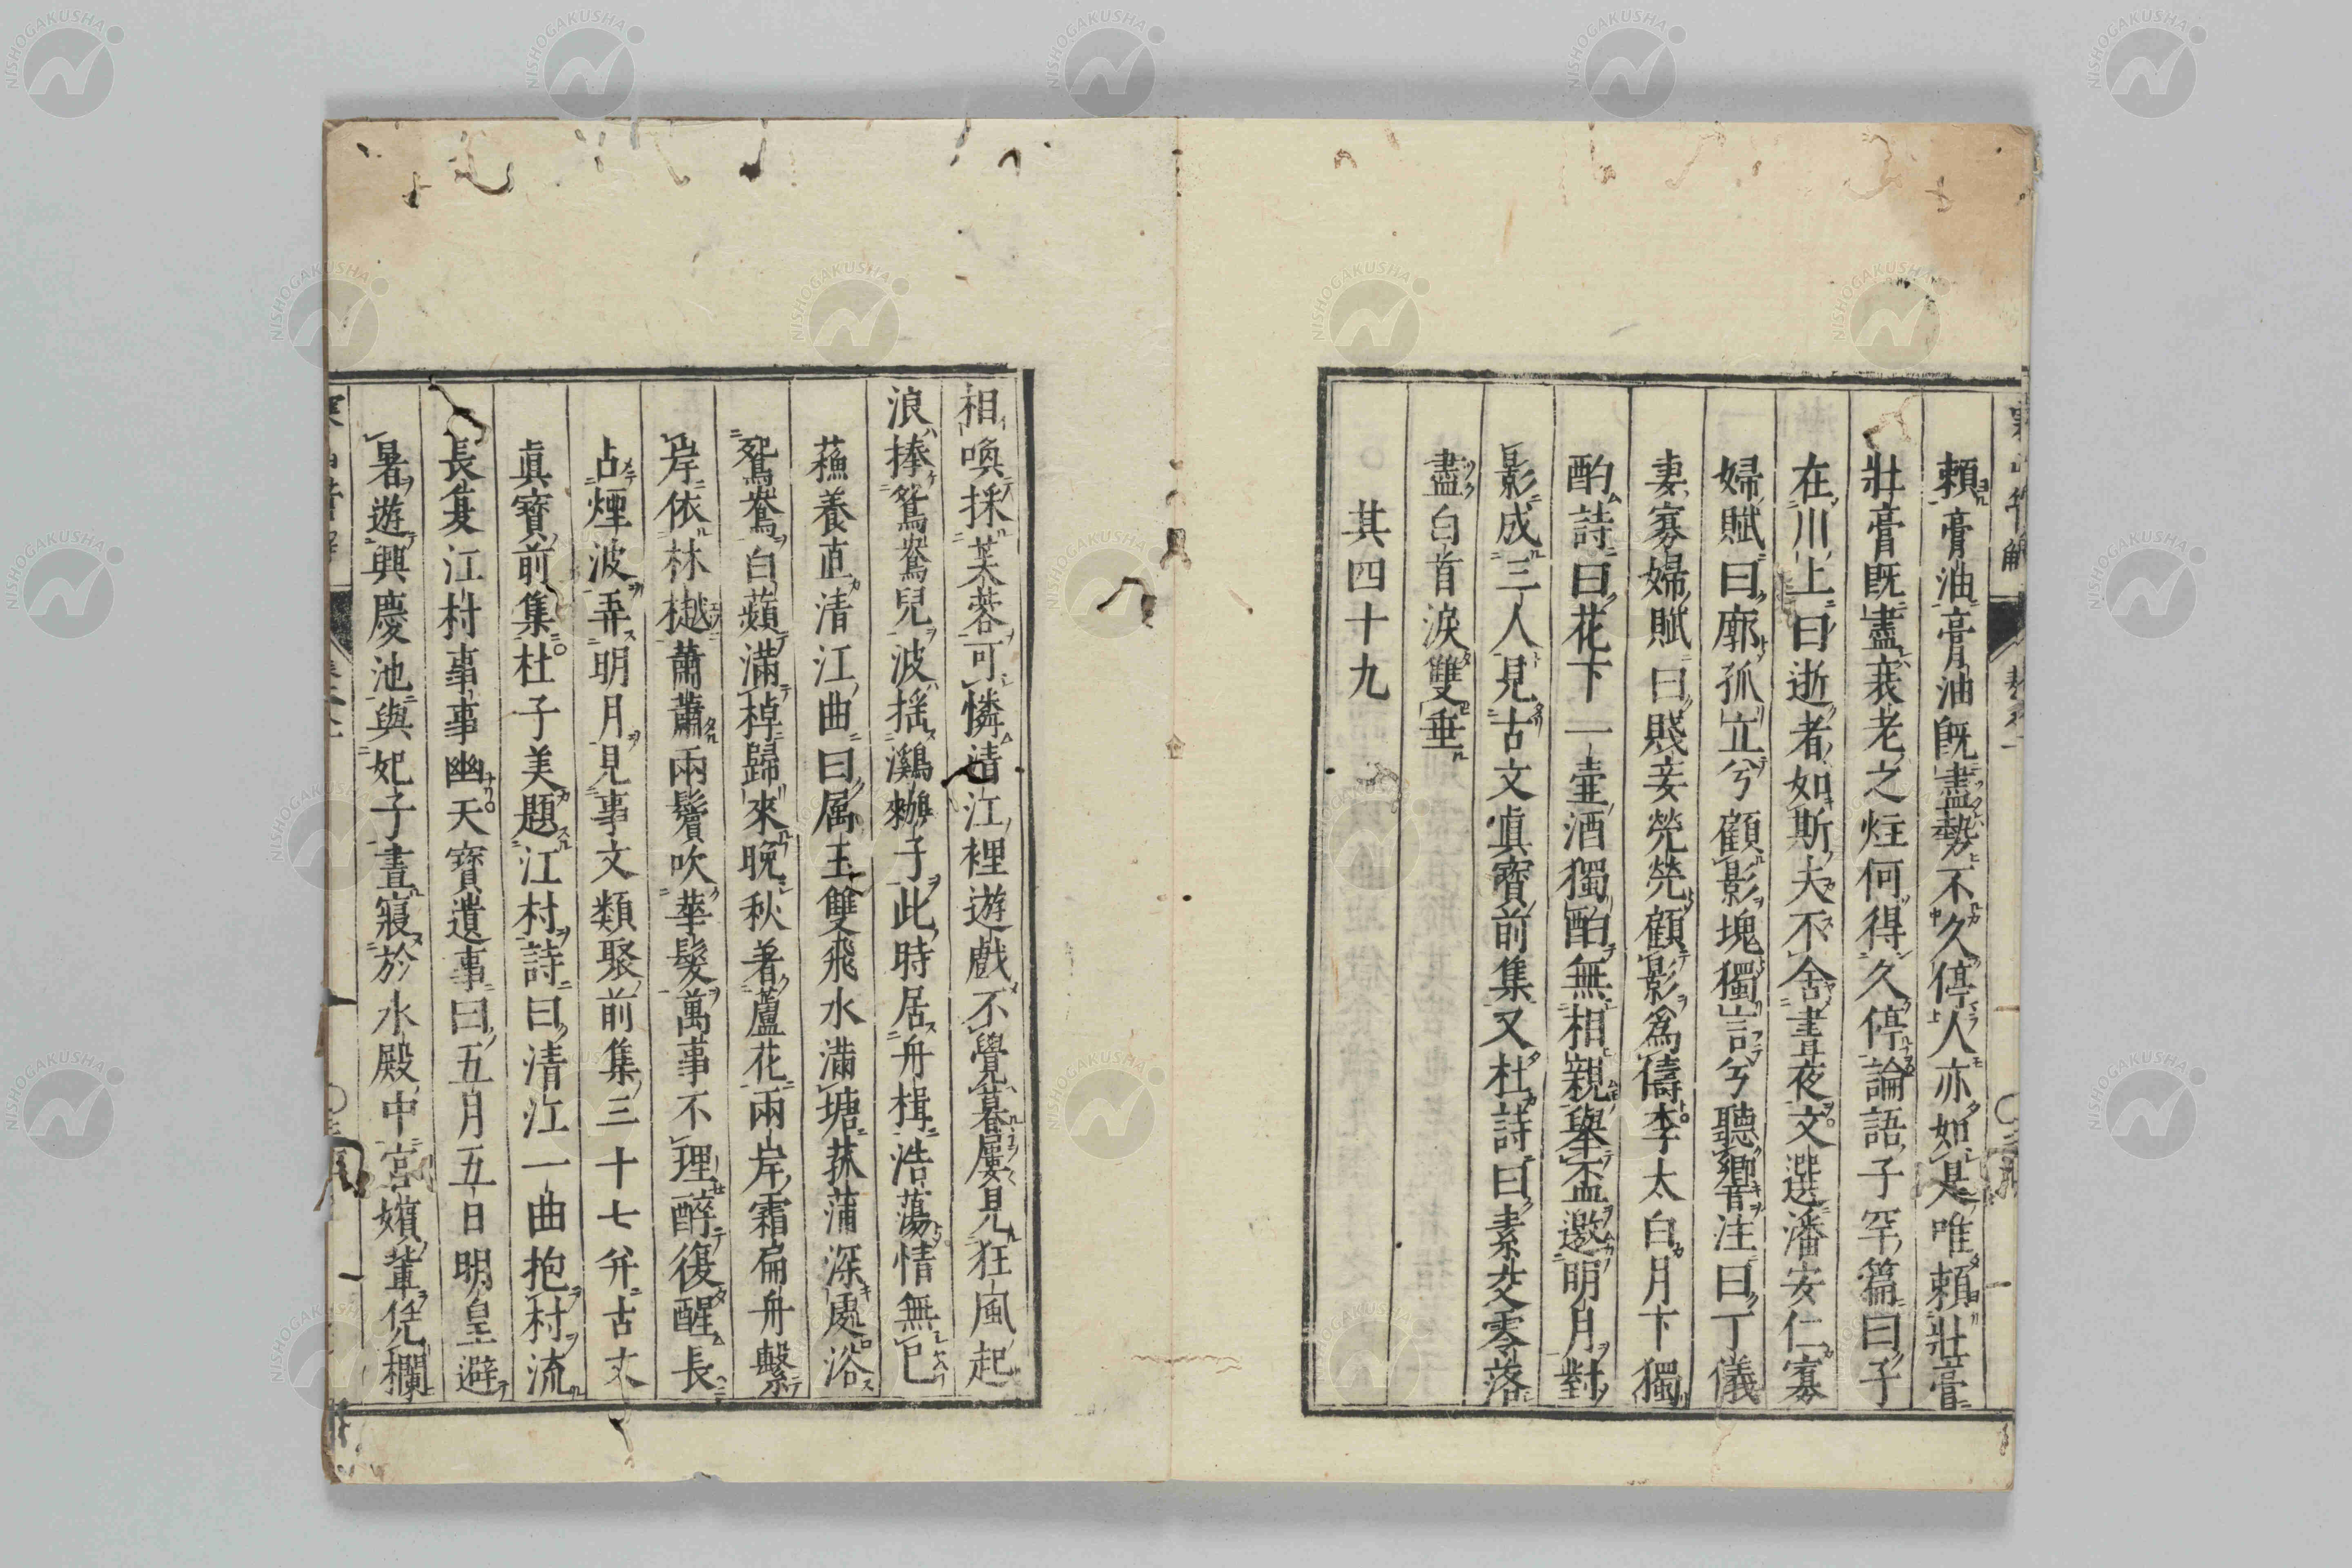 頼膏油膏油既盡勢不久停人亦如是唯頼壯膏
壯膏既盡衰老之炷何得久停論語子罕篇曰子
在川上曰逝者如斯夫不舍晝夜文選潘安仁寡
婦賦曰廓孤立兮顧影塊獨言兮聽響注曰丁儀
妻寡婦賦曰賤妾煢煢顧影爲儔李太白月下獨
酌詩曰花下一壷酒獨酌無相親舉盃邀明月對
影成三人見古文眞寳前集又杜詩曰素交零落
盡白首淚雙垂
其四十九
相喚採芙蓉可憐清江裡遊戲不覺暮屢見狂風起
浪捧鴛鴦兒波揺鸂鶒子此時居舟楫浩蕩情無已
蘓養直清江曲曰属玉雙飛水滿塘菰蒲深處浴
鴛鴦白蘋滿棹歸來晚秋著蘆花兩岸霜扁舟繫
岸依林樾蕭蕭兩鬢吹華髮萬事不理醉復醒長
占煙波弄明月見事文類聚前集三十七并古文
眞寳前集杜子美題江村詩曰清江一曲抱村流
長夏江村事事幽天寳遺事曰五月五日明皇避
暑遊興慶池與妃子晝寢於水殿中宮嬪輩凭欄
NISHOGAKUSHA